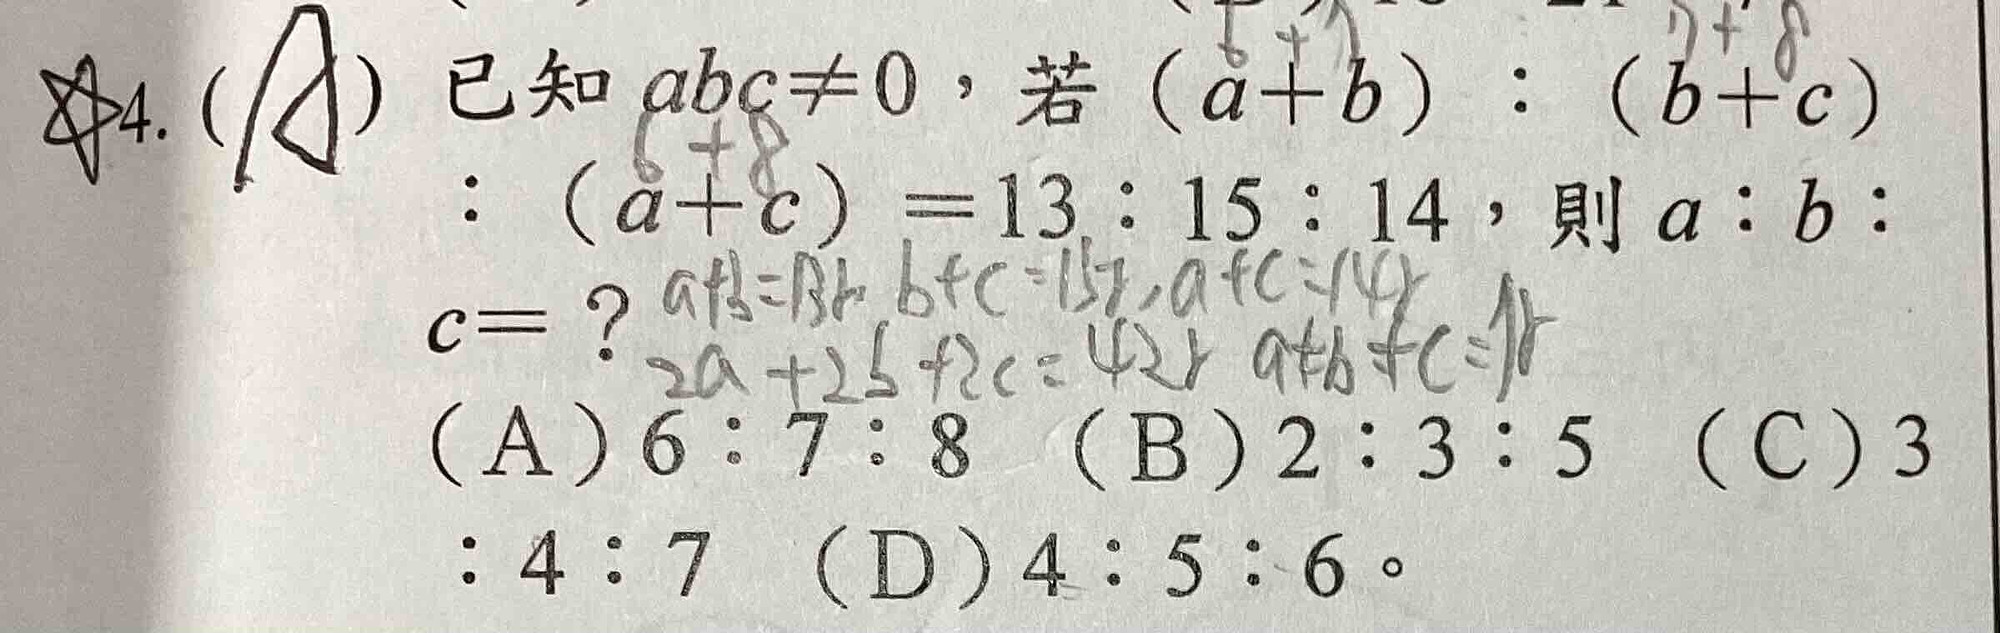 6+7 7+8
☆4.(A)已知 abc≠0,若(a+b):(b+c)
6+8
:(a+c)=13:15:14,則 a:b:
c=?a+b=13r, b+c=15r, a+c=14r
2a+2b+2c=42r a+b+c=
(A)6:7:8 (B)2:3:5 (C)3
:4:7 (D)4:5:6。